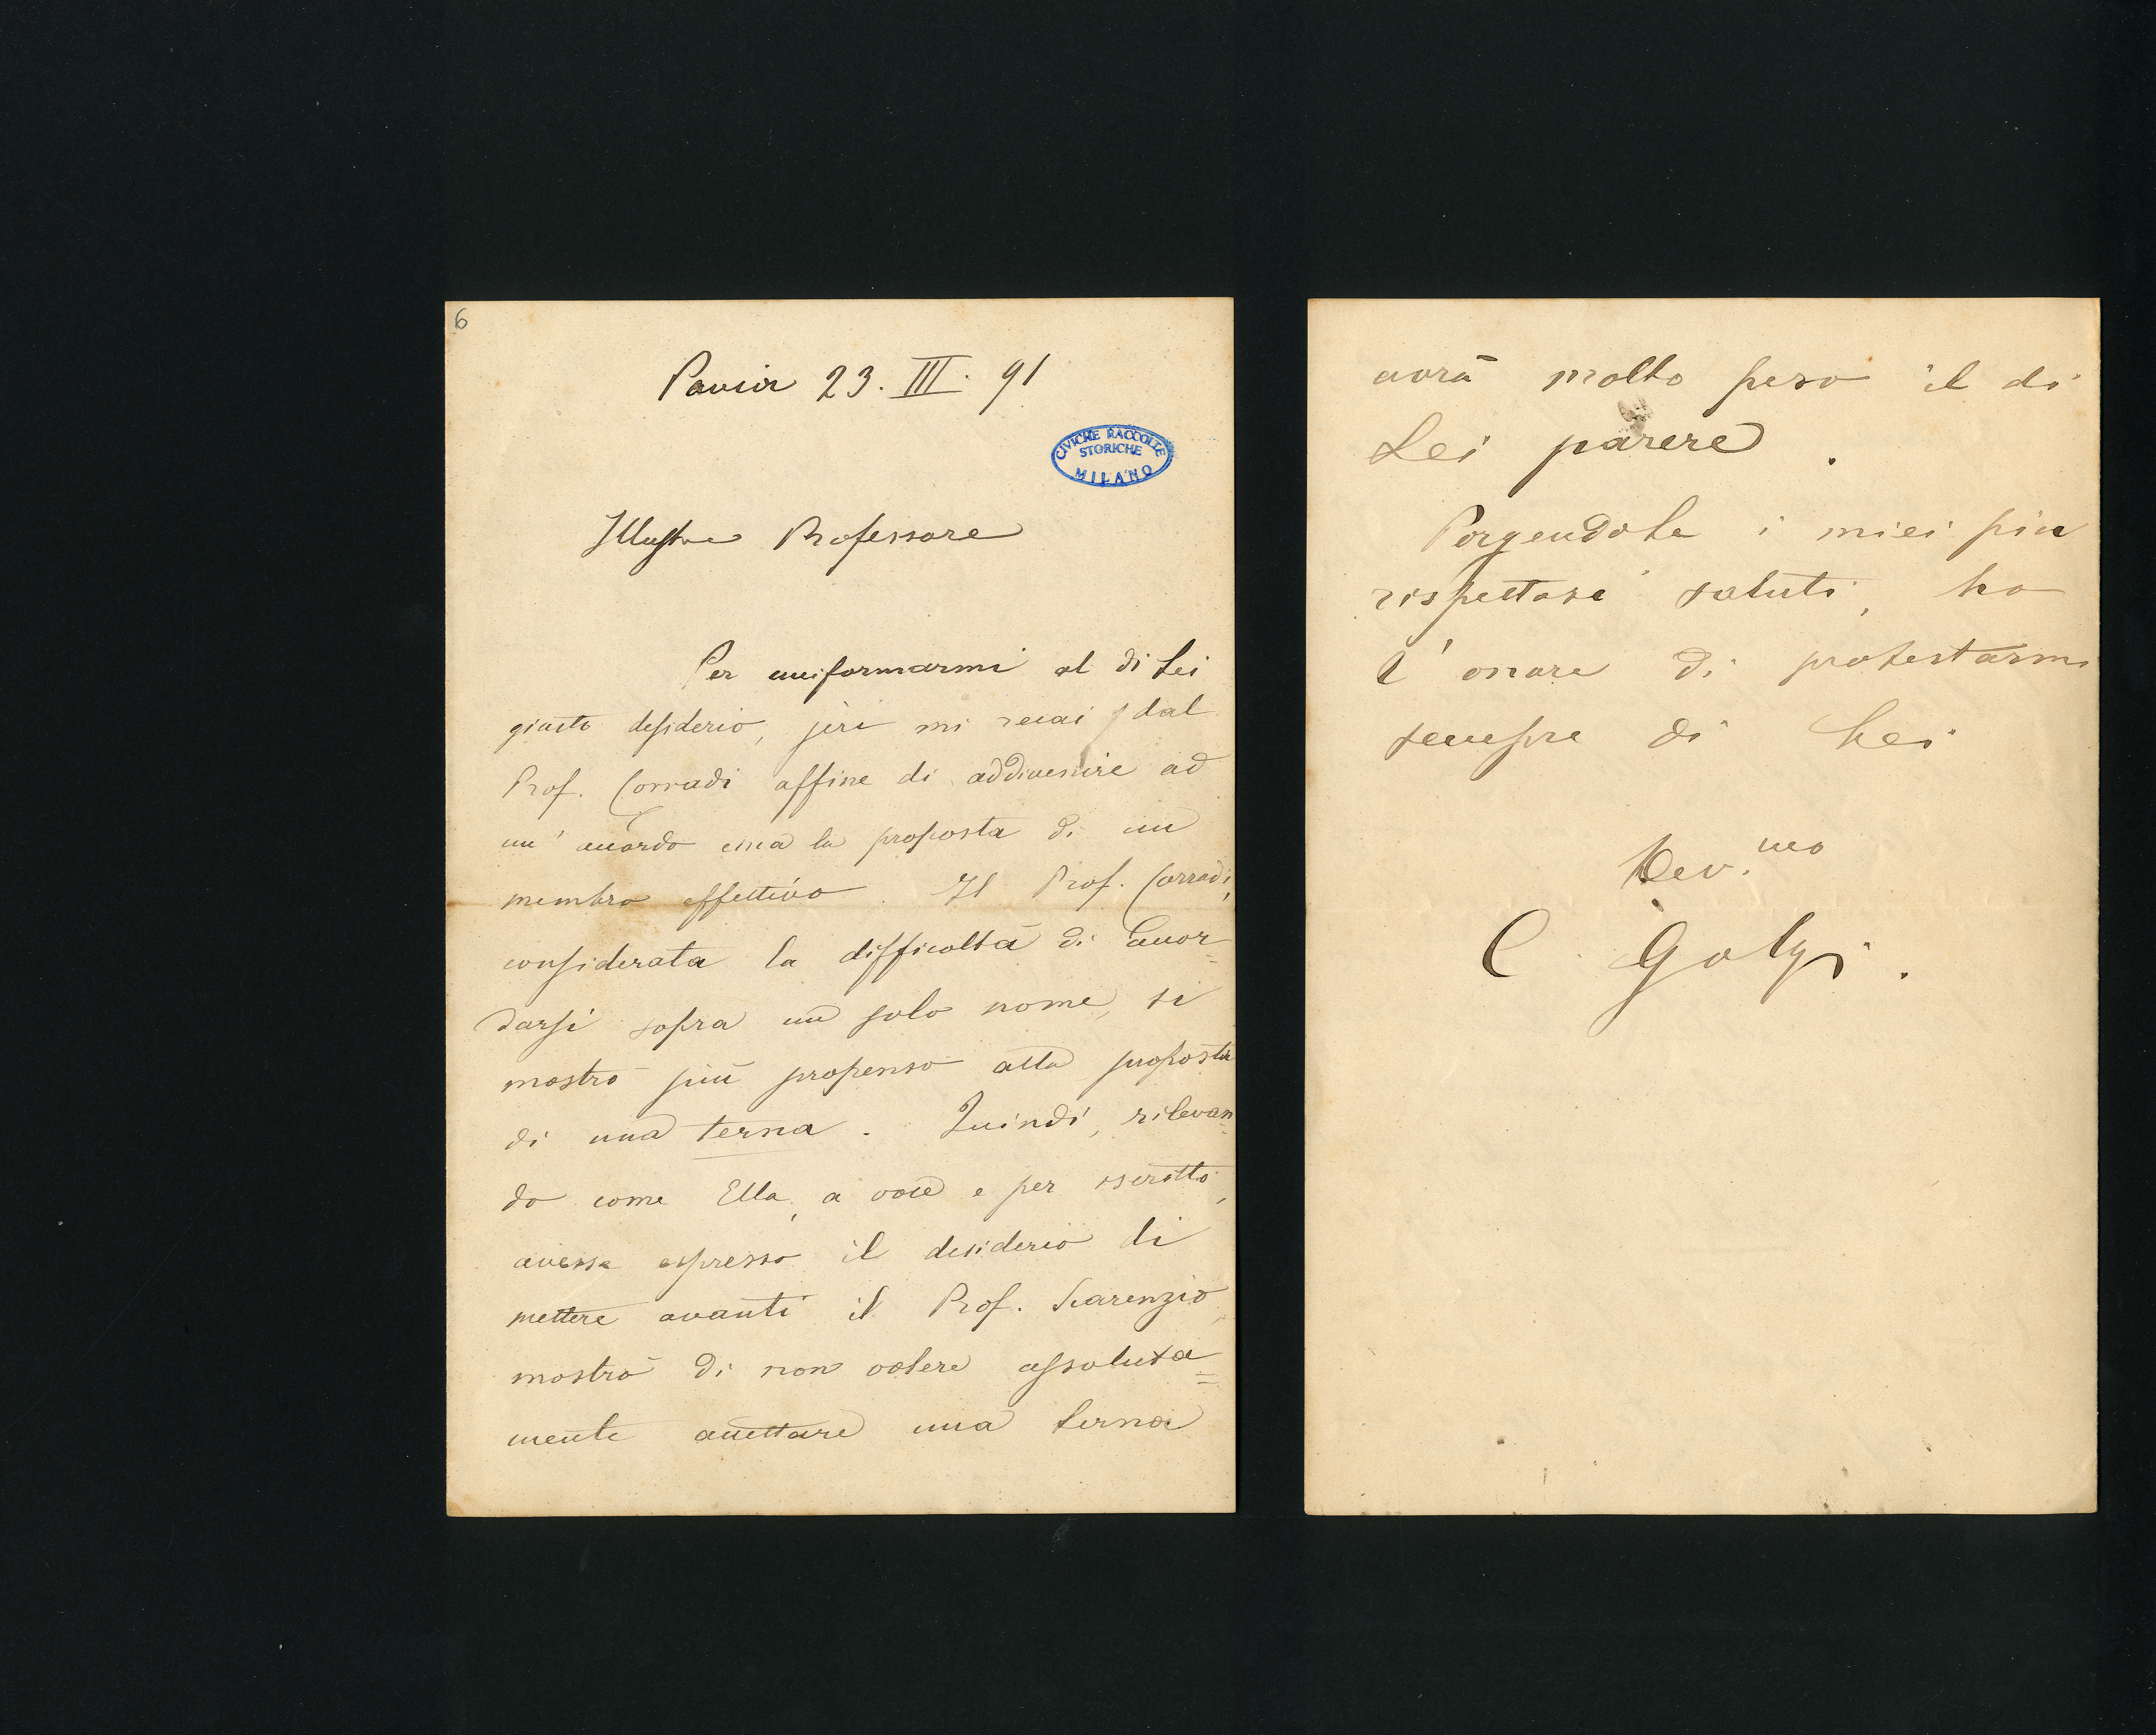 6
Pavia 23. III. 91
CIVICHE RACCOLTE
STORICHE
MILANO
Illustre Professore
Per uniformarmi al di Lei
giusto desiderio, jeri mi recai dal
Prof. Corradi affine di addivenire ad
un' accordo circa la proposta di un
membro effettivo. Il Prof. Corradi,
considerata la difficoltà di accor=
darsi sopra un solo nome, si
mostrò più propenso alla proposta
di una terna. Quindi, rilevan=
do come Ella, a voce e per iscritto,
avesse espresso il desiderio di
mettere avanti il Prof. Scarenzio,
mostrò di non volere assoluta=
mente accettare una terna
avrà molto peso il di
Lei parere.
Porgendole i miei più
rispettosi saluti, ho
l' onore di protestarmi
sempre di Lei
Dev.mo
C. Golgi.